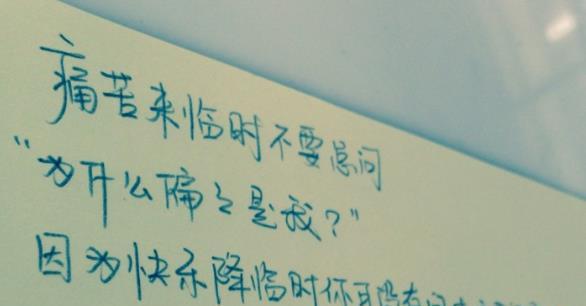 痛苦来临时不要总问
“为什么偏偏是我？”
因为快乐降临时你可没有问